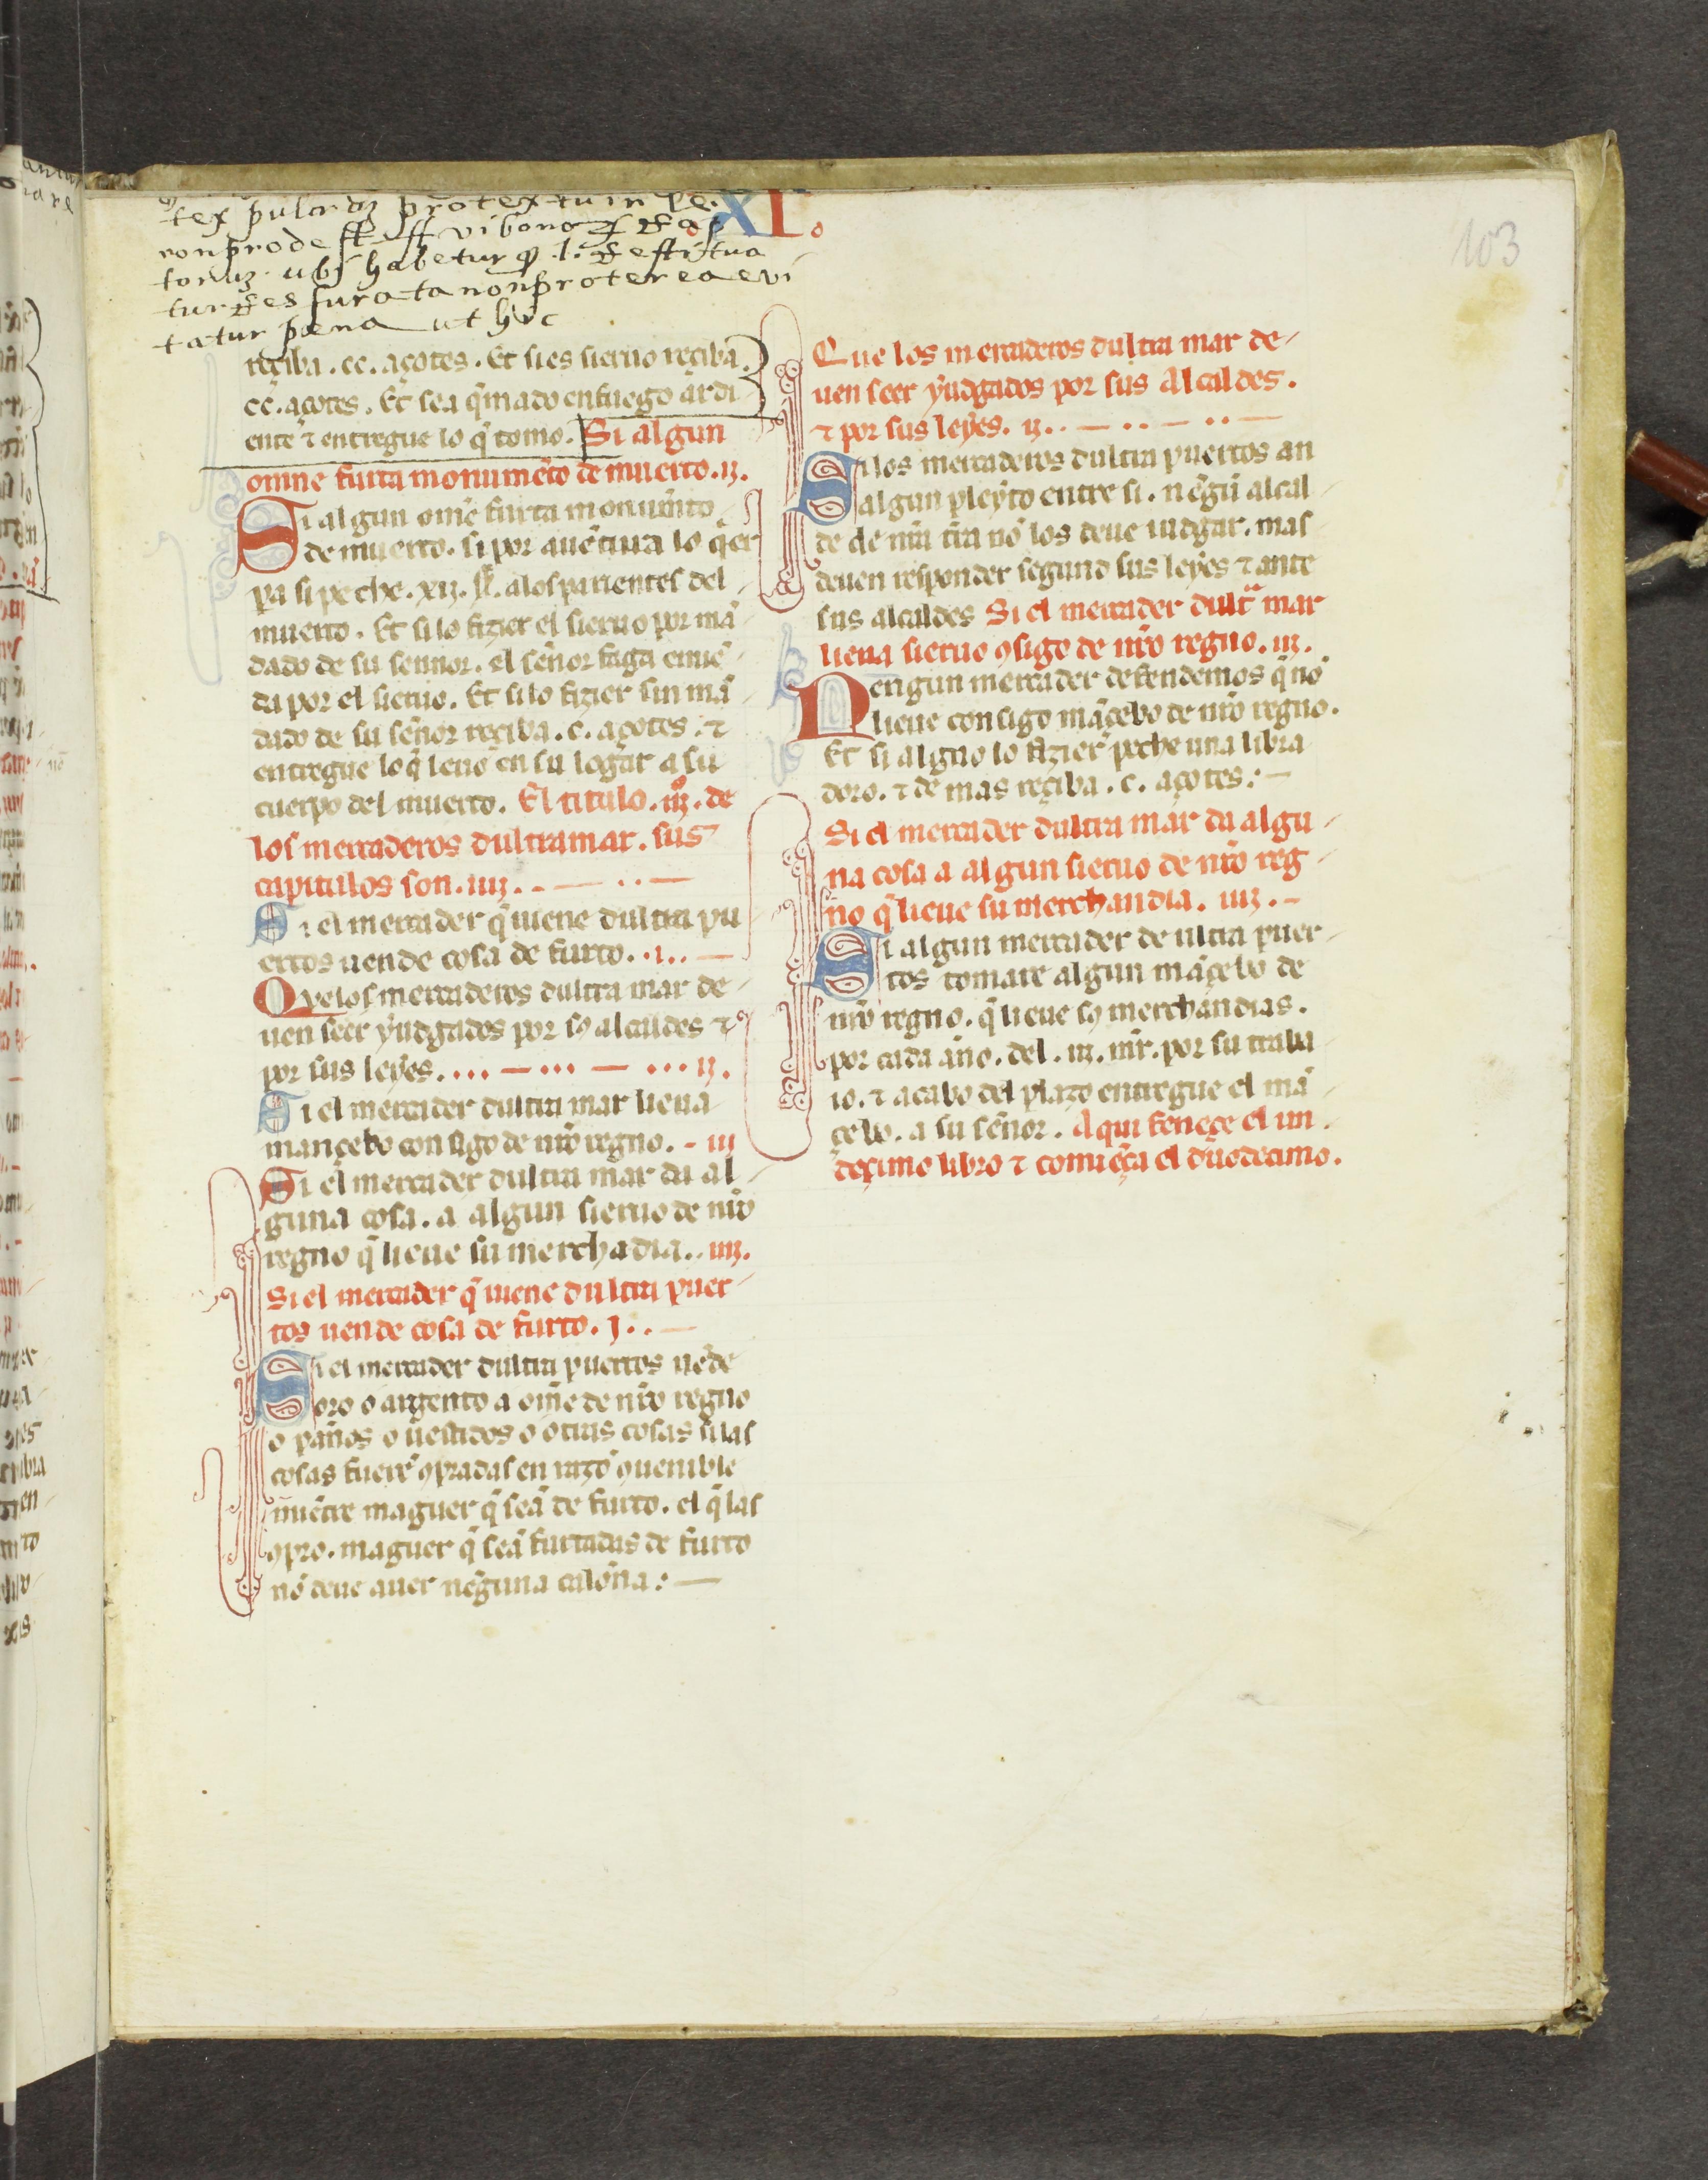 XI.
103
tex pulcrũ protextum
non prodest ff vi bono
ubi habetur
tur res furata non proterea evi
tatur pœna ut hic
reçiba .cc. açotes. Et si es sieruo reçiba
cc. açotes. Et sea q̃mado en fuego ardi
ente ⁊ entregue lo q̃ tomo. Si algun
omne furta monumẽto de muerto .ij.
Si algun omẽ furta monumẽto
de muerto. si por auẽtura lo q̃er
pa si peche .xij. . a los parientes del
muerto. Et si lo fizier el sieruo por mã
dado de su sennor. el señor faga emiẽ
da por el sieruo. Et si lo fizier sin mã
dado de su señor reçiba .c. açotes. ⁊
entregue lo q̃ leuo en su logar a su
cuerpo del muerto. El titulo .iij. de
los mercaderos dultramar. sus
capitulos son .iiij.
Si el mercader q̃ uiene dultra pu
ertos uende cosa de furto. .i..
Que los mercaderos dultra mar de
uen seer yudgados por sꝯ alcaldes ⁊
por sus leyes. ... — ... — ... ij.
Si el mercader dultra mar lieua
mançebo consigo de nr̃o regno. - iij
Si el mercader dultra mar da al
guna cosa. a algun sieruo de nr̃o
regno q̃ lieue su merchadia.. iiij.
Si el mercader q̃ uiene dultra puer
tos uende cosa de furto. j..
Si el mercader dultra puertos uẽde
oro o argento a om̃e de nr̃o regno
o paños o uestidos o otras cosas si las
cosas fuerẽ ꝯpradas en razõ ꝯuenible
miẽtre maguer q̃ seã de furto. el q̃ las
ꝯpro. maguer q̃ seã furtadas de furto
nõ deue auer nẽguna caloña: —
Que los mercaderos dultra mar de
uen seer yudgados por sus Alcaldes.
⁊ por sus leyes. ij.. — .. — .. —
Si los mercaderos dultra puertos an
algun pleyto entre si. nẽgũ alcal
de de nr̃a tr̃a nõ los deue iudgar. mas
deuen responder segund sus leyes ⁊ ante
sus alcaldes Si el mercader dult̃ mar
lieua sieruo ꝯsigo de nr̃o regno. iij.
Nengun mercader defendemos q̃ nõ
lieue consigo mãçebo de nr̃o regno.
Et si alguno lo fizier peche una libra
doro. ⁊ de mas reçiba .c. açotes: —
Si el mercader dultra mar da algu
na cosa a algun sieruo de nr̃o reg
no q̃ lieue su merchandia. iiij. -
Si algun mercader de ultra puer
tos tomare algun mãçebo de
nr̃o regno. q̃ lieue sꝯ merchandias.
por cada año. del .iij. mr̃. por su traba
io. ⁊ acabo del plazo entregue el mã
çebo. a su señor. Aqui feneçe el un
deçimo libro ⁊ comiẽça el duodecimo.